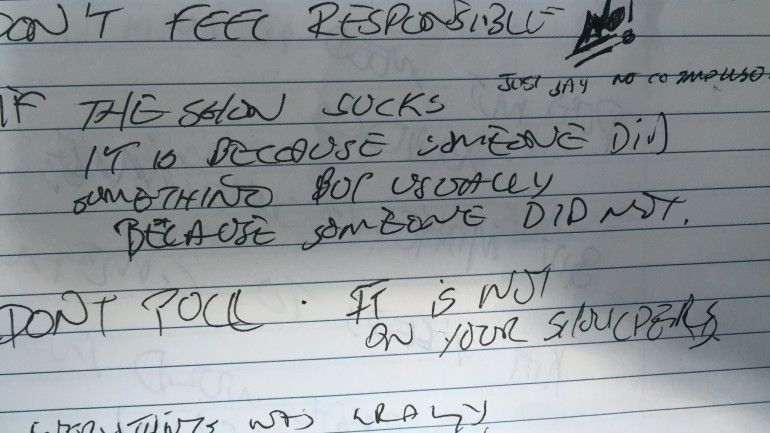 DON'T FEEL RESPONSIBLE NO!
JUST SAY NO
IF THE SHOW SUCKS
IT IS BECAUSE SOMEONE DID
SOMETHING BUT USUALLY
BECAUSE SOMEONE DID NOT.
DONT . IT IS NOT
ON YOUR
WAS